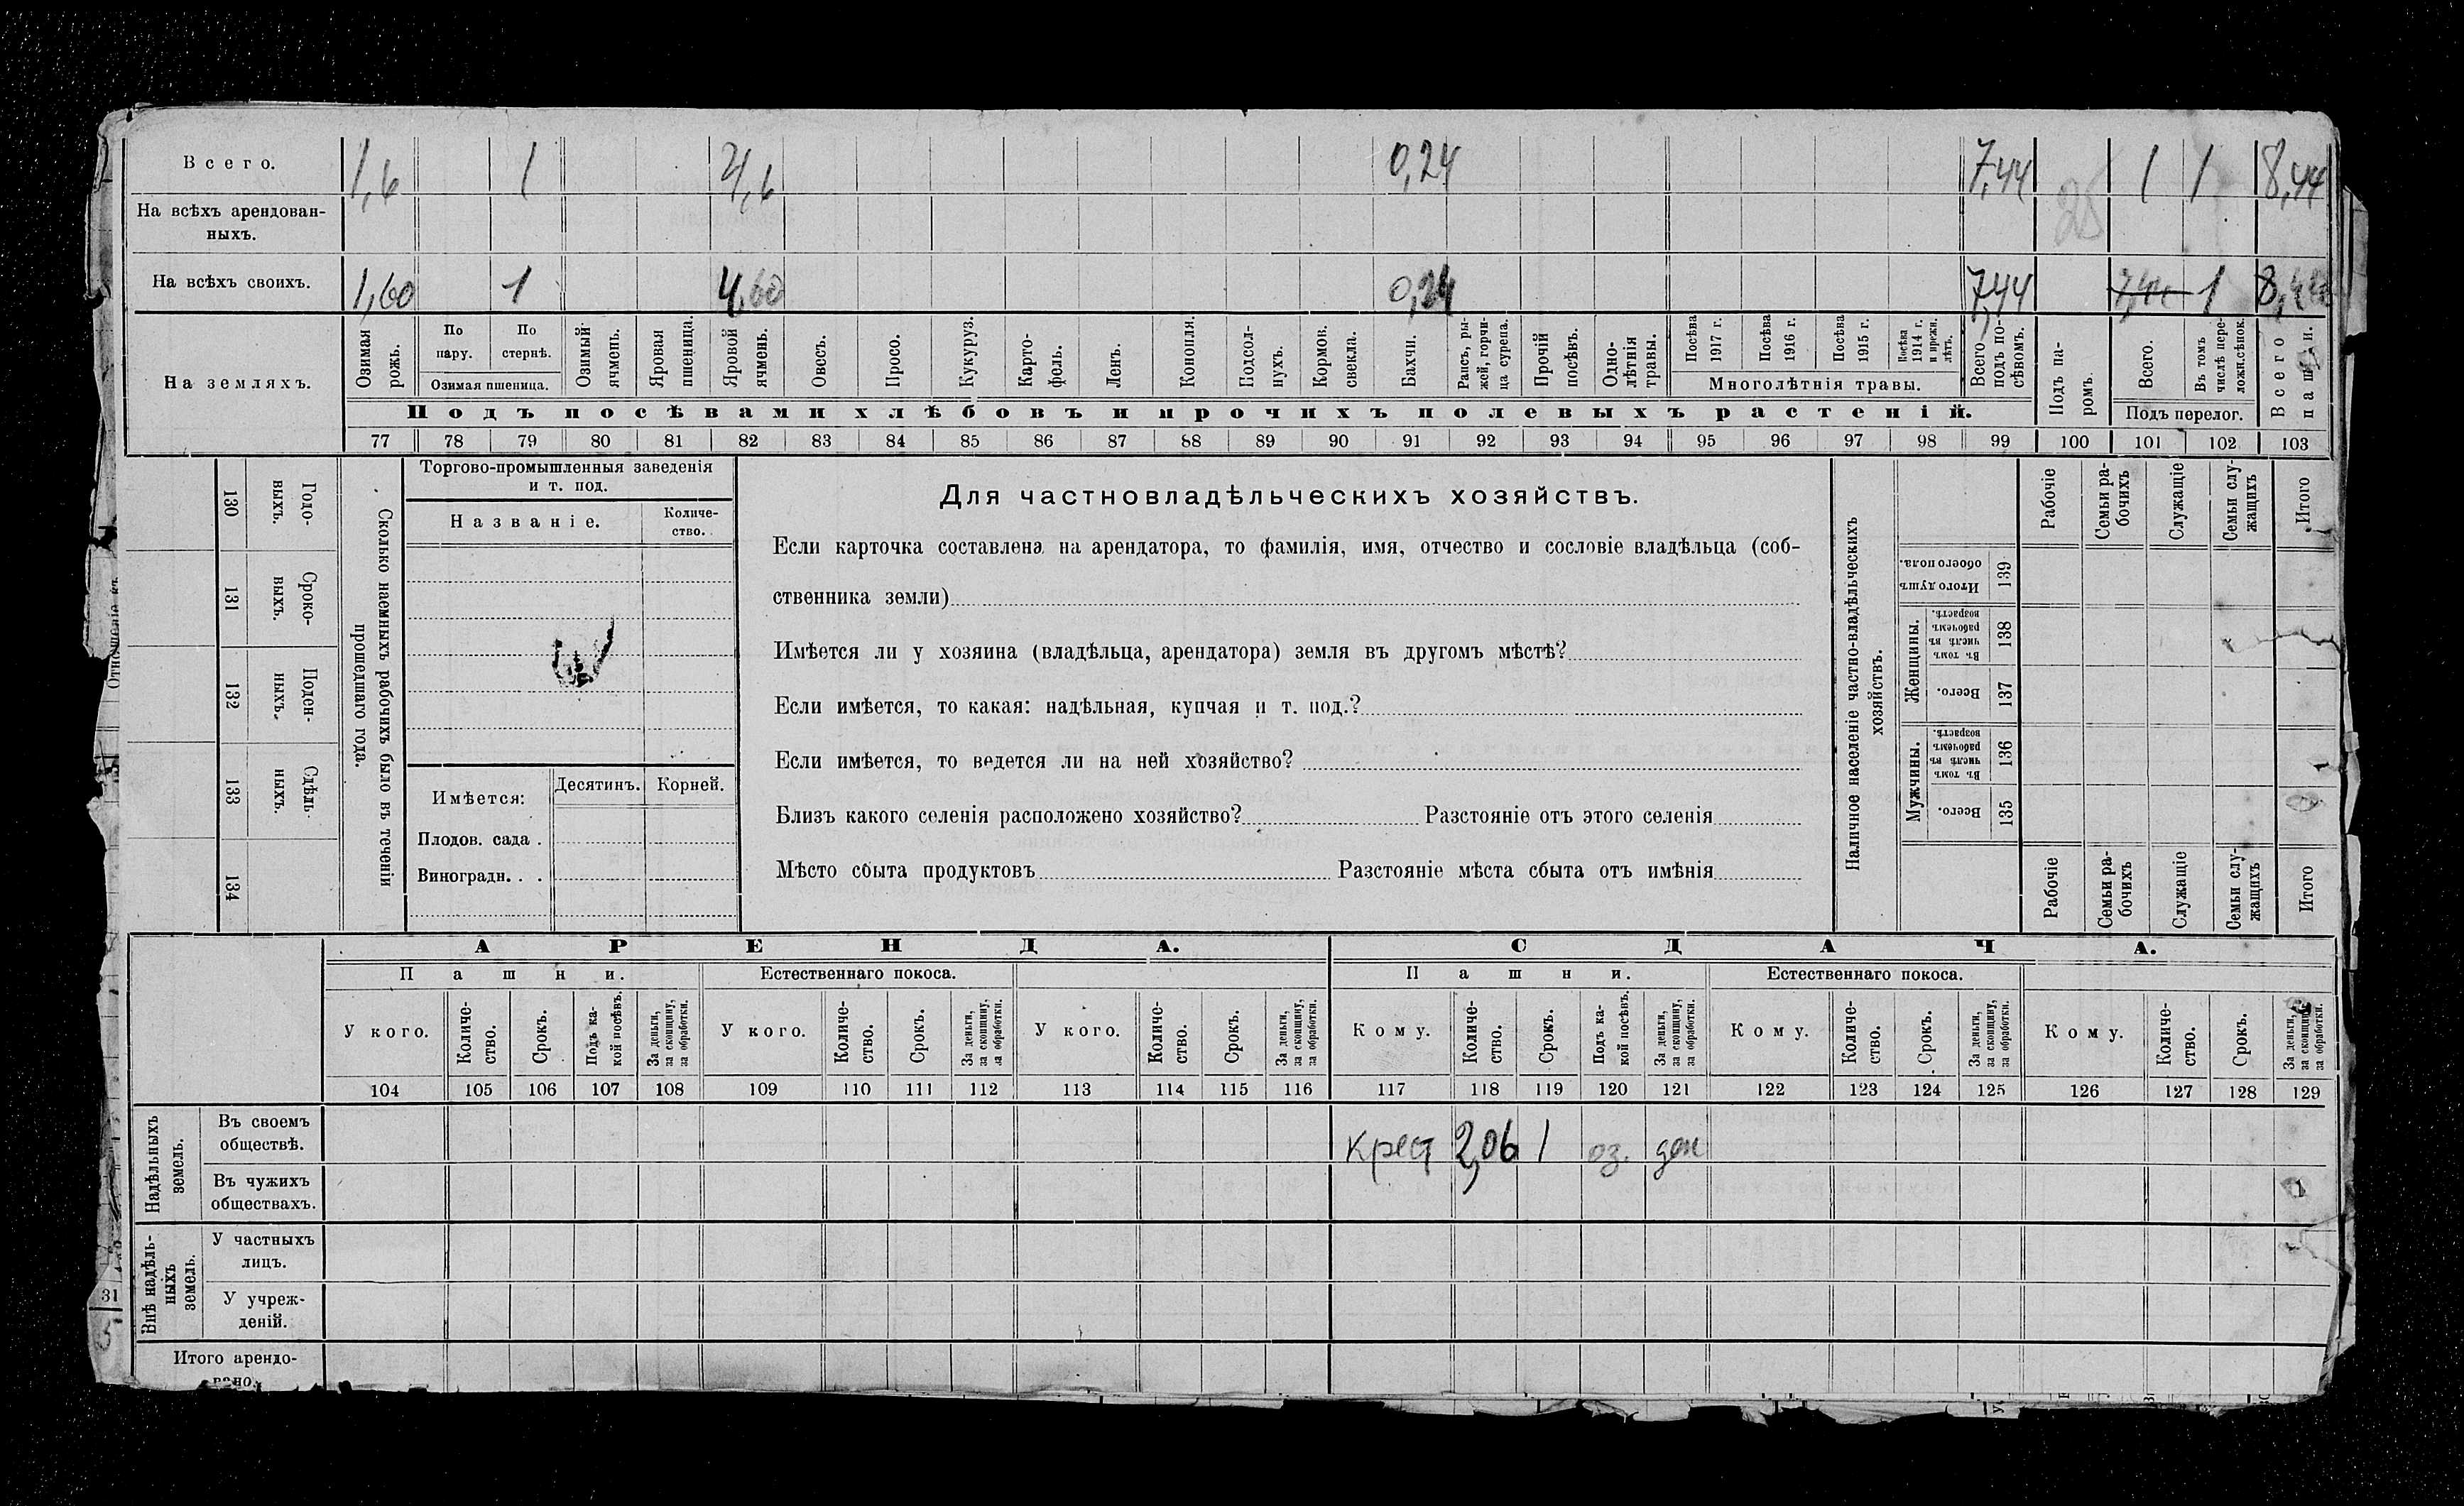 Всего. 1,6 1 4,6 0,24 7,44 1 1 8,44
На всѣхъ арендован-
ныхъ. 28
На всѣхъ своихъ. 1,60 1 4,60 0,24 7,44 1 8,44
На земляхъ.
Озимая рожь.
По пару.
По стернѣ.
Озимая пшеница.
Озимый ячмень.
Яровая пшеница.
Яровой ячмень.
Овесъ.
Просо.
Кукуруз.
Карто-
фель.
Ленъ.
Конопля.
Подсол-
нухъ.
Кормов. свекла.
Бахчи.
Рапсъ, ры-
жей, горчи-
ца сурепа.
Прочій посѣвъ.
Одно-
лѣтнія травы.
Посѣва 1917 г.
Посѣва 1916 г.
Посѣва 1915 г.
Посѣва 1914 г. и прежн. лѣтъ.
Многолѣтнія травы.
Всего подъ по-
сѣвомъ.
Подъ па-
ромъ.
Всего.
Въ томъ числѣ пере-
ложн.сѣнок.
Подъ перелог.
Всего пашни.
Подъ посѣвами хлѣбовъ и прочихъ полевыхъ растеній.
77 78 79 80 81 82 83 84 85 86 87 88 89 90 91 92 93 94 95 96 97 98 99 100 101 102 103
130 Годо-
выхъ.
131 Сроко-
выхъ.
132 Поден-
ныхъ.
133 Сдѣль-
ныхъ.
134
Сколько наемныхъ рабочихъ было въ теченіи
прошедшаго года.
Торгово-промышленныя заведенія
и т. под.
Названіе.
Количе-
ство.
Имѣется:
Десятинъ.
Корней.
Плодов. сада .
Виноградн. . .
Для частновладѣльческихъ хозяйствъ.
Если карточка составлена на арендатора, то фамилія, имя, отчество и сословіе владѣльца (соб-
ственника земли)
Имѣется ли у хозяина (владѣльца, арендатора) земля въ другомъ мѣстѣ?
Если имѣется, то какая: надѣльная, купчая и т. под.?
Если имѣется, то ведется ли на ней хозяйство?
Близъ какого селенія расположено хозяйство? Разстояніе отъ этого селенія
Мѣсто сбыта продуктовъ Разстояніе мѣста сбыта отъ имѣнія
Наличное населеніе частно-владѣльческихъ
хозяйствъ.
Рабочіе
Семьи ра-
бочихъ
Служащіе
Семьи слу-
жащихъ
Итого
Итого душъ обоего пола. 139
Женщины.
Въ томъ числѣ въ рабочемъ возрастѣ. 138
Всего. 137
Мужчины.
Въ томъ числѣ въ рабочемъ возрастѣ. 136
Всего. 135
Рабочіе
Семьи ра-
бочихъ
Служащіе
Семьи слу-
жащихъ
Итого
АРЕНДА. СДАЧА.
Пашни. Естественнаго покоса. Пашни. Естественнаго покоса.
У кого.
Количе-
ство.
Срокъ.
Подъ ка-
кой посѣвъ.
За деньги,
за скопщину,
за обработки.
У кого.
Количе-
ство.
Срокъ.
За деньги,
за скопщину,
за обработки.
У кого.
Количе-
ство.
Срокъ.
За деньги,
за скопщину,
за обработки.
Кому.
Количе-
ство.
Срокъ.
Подъ ка-
кой посѣвъ.
За деньги,
за скопщину,
за обработки.
Кому.
Количе-
ство.
Срокъ.
За деньги,
за скопщину,
за обработки.
Кому.
Количе-
ство.
Срокъ.
За деньги,
за скопщину,
за обработки.
104 105 106 107 108 109 110 111 112 113 114 115 116 117 118 119 120 121 122 123 124 125 126 127 128 129
Надѣльныхъ
земель.
Въ своемъ
обществѣ. крест 2,06 1 оз. ден
Въ чужихъ
обществахъ.
Внѣ надѣль-
ныхъ
земель.
У частныхъ
лицъ.
У учреж-
деній.
Итого арендо-
вано.
31
5